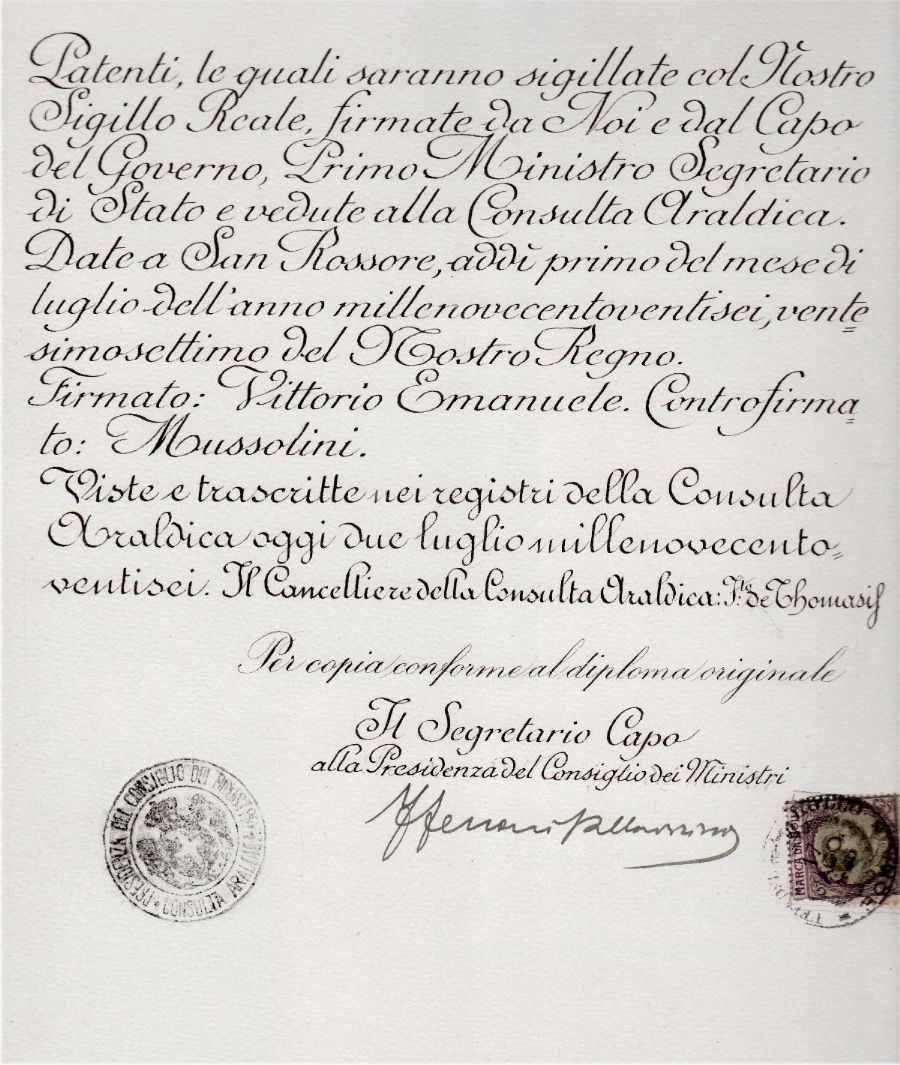 Patenti, le quali saranno sigillate col Nostro
Sigillo Reale, firmate da Noi e dal Capo
del Governo, Primo Ministro Segretario
di Stato e vedute alla Consulta Araldica.
Date a San Rossore, addì primo del mese di
luglio dell'anno millenovecentoventisei, vente=
simosettimo del Nostro Regno.
Firmato: Vittorio Emanuele. Controfirma=
to: Mussolini.
Viste e trascritte nei registri della Consulta
Araldica oggi due luglio millenovecento=
ventisei. Il Cancelliere della Consulta Araldica: Fto: de Thomasis
Per copia conforme al diploma originale
Il Segretario Capo
alla Presidenza del Consiglio dei Ministri
PRESIDENZA DEL CONSIGLIO DEI MINISTRI
CONSULTA ARALDICA
MARCA DA